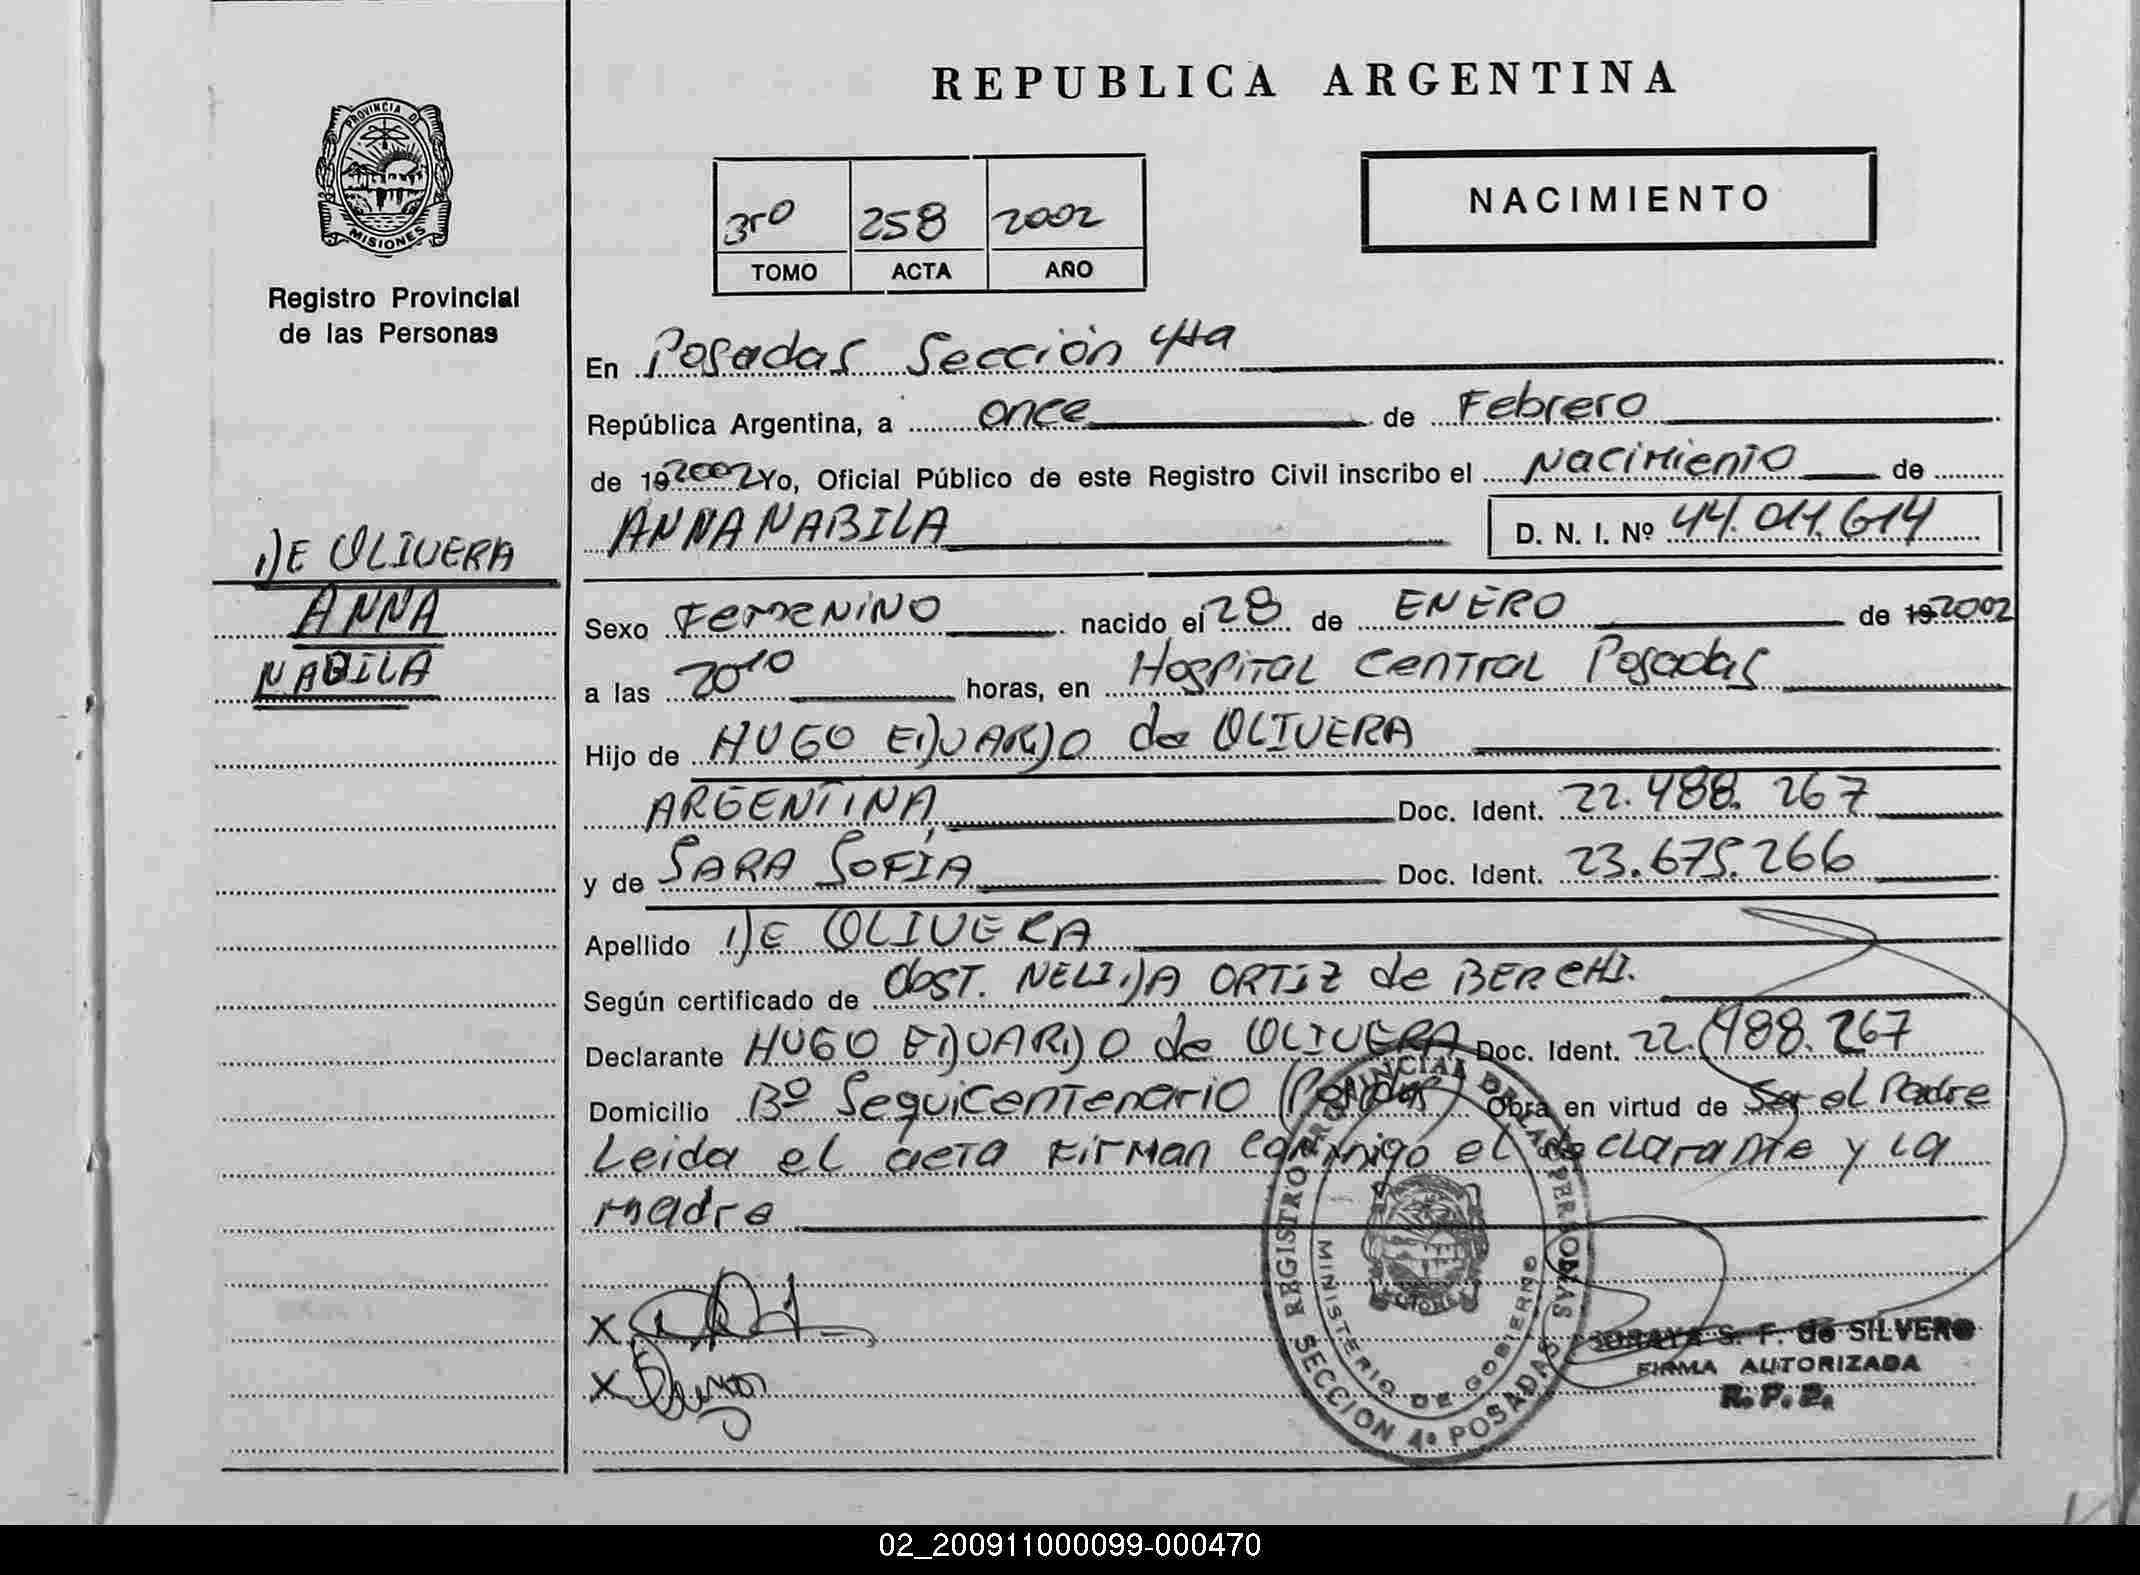 REPUBLICA ARGENTINA
PROVINCIA DE
MISIONES
Registro Provincial
de las Personas
3ro 258 2002
TOMO ACTA AÑO
NACIMIENTO
En Posadas Sección 4ta
República Argentina, a once de Febrero
de 19 2002 Yo, Oficial Público de este Registro Civil inscribo el Nacimiento de
ANNA NABILA D. N. I. Nº 44.011.614
DE OLIVERA
ANNA
NABILA
Sexo Femenino nacido el 28 de ENERO de 19 2002
a las 20 10 horas, en Hospital Central Posadas
Hijo de HUGO EDUARDO de OLIVERA
ARGENTINA Doc. Ident. 22.488.267
y de SARA SOFÍA Doc. Ident. 23.675.266
Apellido DE OLIVERA
Según certificado de Obst. NELIDA ORTIZ de BERCHI.
Declarante HUGO EDUARDO de OLIVERA Doc. Ident. 22.488.267
Domicilio Bº Sequicentenario Posadas Obra en virtud de Ser el Padre
Leida el acta Firman conmigo el declarante y la
madre
X
X
REGISTRO PROVINCIAL DE LAS PERSONAS
MINISTERIO DE GOBIERNO
SECCION 4ª POSADAS
SORAYA S. F. de SILVERO
FIRMA AUTORIZADA
R. P. P.
02_200911000099-000470